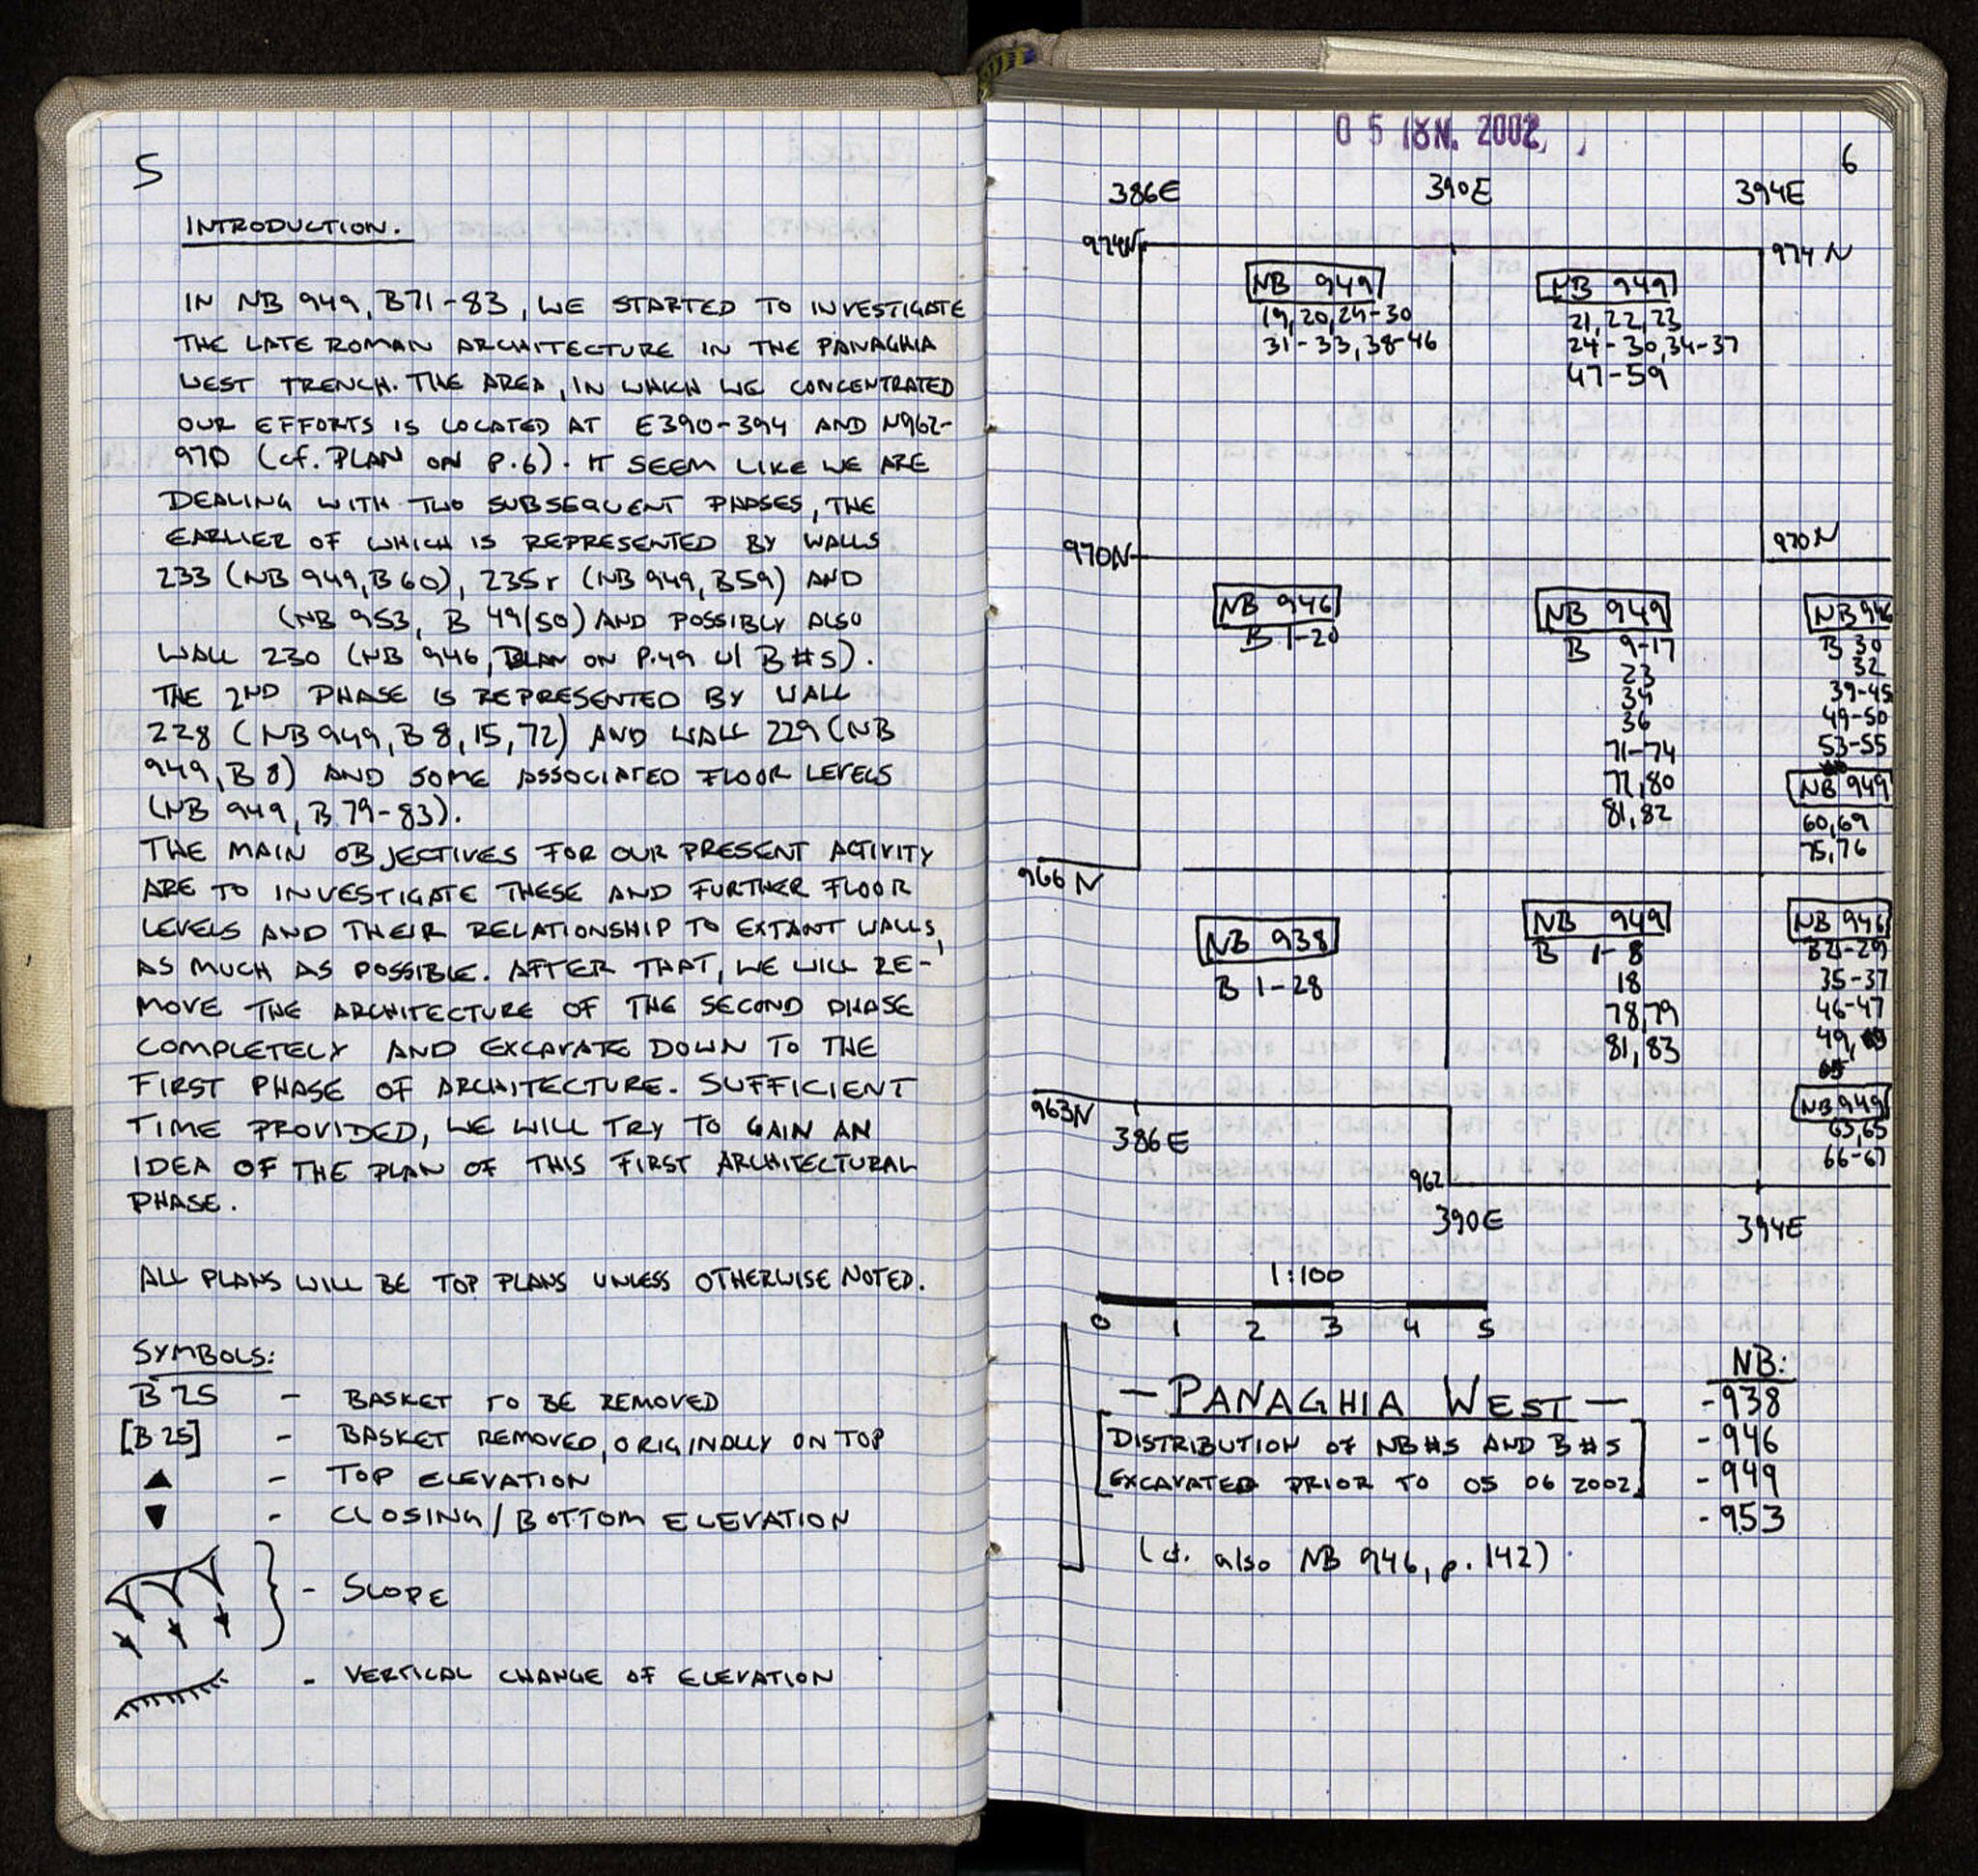 5
INTRODUCTION.
IN NB 949, B71-83, WE STARTED TO INVESTIGATE
THE LATE ROMAN ARCHITECTURE IN THE PANAGHIA
WEST TRENCH. THE AREA, IN WHICH WE CONCENTRATED
OUR EFFORTS IS LOCATED AT E390-394 AND N962-
970 (cf. PLAN ON P.6). IT SEEM LIKE WE ARE
DEALING WITH TWO SUBSEQUENT PHASES, THE
EARLIER OF WHICH IS REPRESENTED BY WALLS
233 (NB 949, B60), 235r (NB 949, B59) AND
(NB 953, B 49/50) AND POSSIBLY ALSO
WALL 230 (NB 946, PLAN ON P.49 W/ B#S).
THE 2ND PHASE IS REPRESENTED BY WALL
228 (NB 949, B 8, 15, 72) AND WALL 229 (NB
949, B 8) AND SOME ASSOCIATED FLOOR LEVELS
(NB 949, B 79-83).
THE MAIN OBJECTIVES FOR OUR PRESENT ACTIVITY
ARE TO INVESTIGATE THESE AND FURTHER FLOOR
LEVELS AND THEIR RELATIONSHIP TO EXTANT WALLS,
AS MUCH AS POSSIBLE. AFTER THAT, WE WILL RE-
MOVE THE ARCHITECTURE OF THE SECOND PHASE
COMPLETELY AND EXCAVATE DOWN TO THE
FIRST PHASE OF ARCHITECTURE. SUFFICIENT
TIME PROVIDED, WE WILL TRY TO GAIN AN
IDEA OF THE PLAN OF THIS FIRST ARCHITECTURAL
PHASE.
ALL PLANS WILL BE TOP PLANS UNLESS OTHERWISE NOTED.
SYMBOLS:
B 25 - BASKET TO BE REMOVED
[B 25] - BASKET REMOVED, ORIGINALLY ON TOP
▲ - TOP ELEVATION
▼ - CLOSING/BOTTOM ELEVATION
- SLOPE
- VERTICAL CHANGE OF ELEVATION
05 ΙΟΥΝ. 2002
6
386E 390E 394E
974N 974N
NB 949
19,20,24-30
31-33,38-46
NB 949
21,22,23
24-30,34-37
47-59
970N 970N
NB 946
B 1-20
NB 949
B 9-17
23
34
36
71-74
77,80
81,82
NB 946
B 30
32
39-45
49-50
53-55
NB 949
60,69
75,76
966N
NB 938
B 1-28
NB 949
B 1-8
18
78,79
81,83
NB 946
B21-29
35-37
46-47
49,
NB 949
63,65
66-67
963N
386E
962
390E 394E
1:100
0 1 2 3 4 5
- PANAGHIA WEST -
[DISTRIBUTION OF NB#S AND B#S
EXCAVATED PRIOR TO 05 06 2002]
(cf. also NB 946, p. 142)
NB:
-938
-946
-949
-953